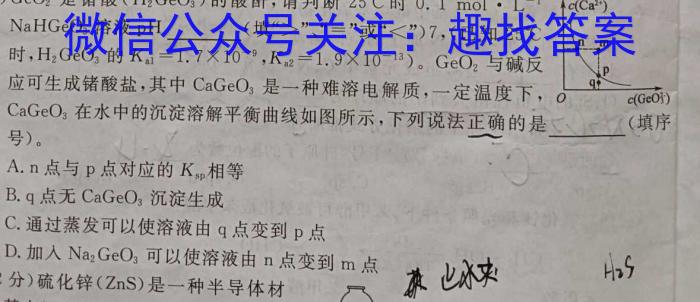 GeO₂ 是锗酸(H₂GeO₃)的酸酐,请判断 25℃ 时 0.1 mol·L⁻
c(Ca²⁺)
NaHGeO₃溶液 pH (填“>”“=”或“<”)7,
微信公众号关注:趣找答案
时,H₂GeO₃ 的 Kₐ₁=1.7×10⁻⁹,Kₐ₂=1.9×10⁻¹³)。GeO₂ 与碱反
n
p
q
应可生成锗酸盐,其中 CaGeO₃ 是一种难溶电解质,一定温度下,
O c(GeO₃²⁻)
CaGeO₃ 在水中的沉淀溶解平衡曲线如图所示,下列说法正确的是______(填序
号)。
A. n 点与 p 点对应的 Kₛₚ相等
B. q 点无 CaGeO₃ 沉淀生成
C. 通过蒸发可以使溶液由 q 点变到 p 点
D. 加入 Na₂GeO₃ 可以使溶液由 n 点变到 m 点
分)硫化锌(ZnS)是一种半导体材
H₂S